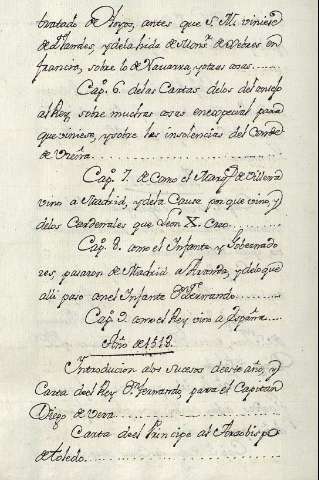 tratado de Noyon, antes que S. M. viniese
de Flandes, y dela hida de Monsr. de Xebres en
francia, sobre lo de Navarra, y otras cosas
Capo. 6. delas Cartas delos del Consejo
al Rey, sobre muchas cosas en especial para
que viniese, y sobre las insolencias del Conde
de Ureña
Capo. 7. de como el Marqs. de Villena
vino a Madrid, y dela Causa por que vino, y
delos Cardenales que Leon X. Creo
Capo. 8. como el Infante y Gobernado
res, pasaron de Madrid a Aranda, y delo que
alli paso con el Infante Dn. Fernando
Capo. 9. como el Rey vino a España
Año de 1518.
Introducion alos sucesos deeste año, y
Carta del Rey Dn. Fernando, para el Capitan
Diego de Vera
Carta del Principe al Arzobispo
de Toledo